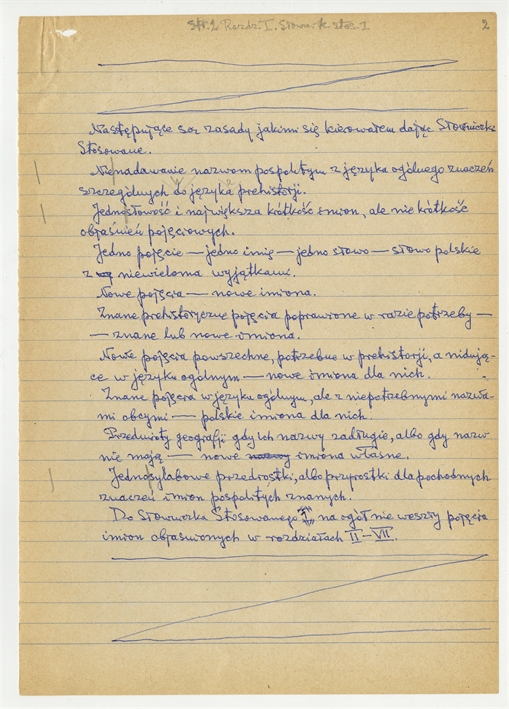 str. 2 Rozdz. I. Słown-k stos. 1
2
Następujące są zasady jakimi się kierowałem dając Słowniczk
Stosowane.
Nienadawanie nazwom pospolitym z języka ogólnego znaczeń
szczególnych do języka prehistorji.
Jednosłowość i największa krótkość imion, ale nie krótkość
objaśnień pojęciowych.
Jedno pojęcie — jedno imię — jedno słowo — słowo polskie
z niewieloma wyjątkami.
Nowe pojęcia — nowe imiona.
Znane prehistoryczne pojęcia poprawione w razie potrzeby —
— znane lub nowe imiona.
Nowe pojęcia powszechne, potrzebne w prehistorji, a
ce w języku ogólnym — nowe imiona dla nich.
Znane pojęcia w języku ogólnym, ale z niepotrzebnymi nazwa-
mi obcymi — polskie imiona dla nich.
Przedmioty geografji gdy ich nazwy zadługie, albo gdy nazw
nie mają — nowe nazwy imiona własne.
Jednosylabowe przedrostki, albo przyrostki dla pochodnych
znaczeń imion pospolitych znanych.
Do Słowniczka Stosowanego "1" na ogół nie weszły pojęcia
imion objaśnionych w rozdziałach II–VII.